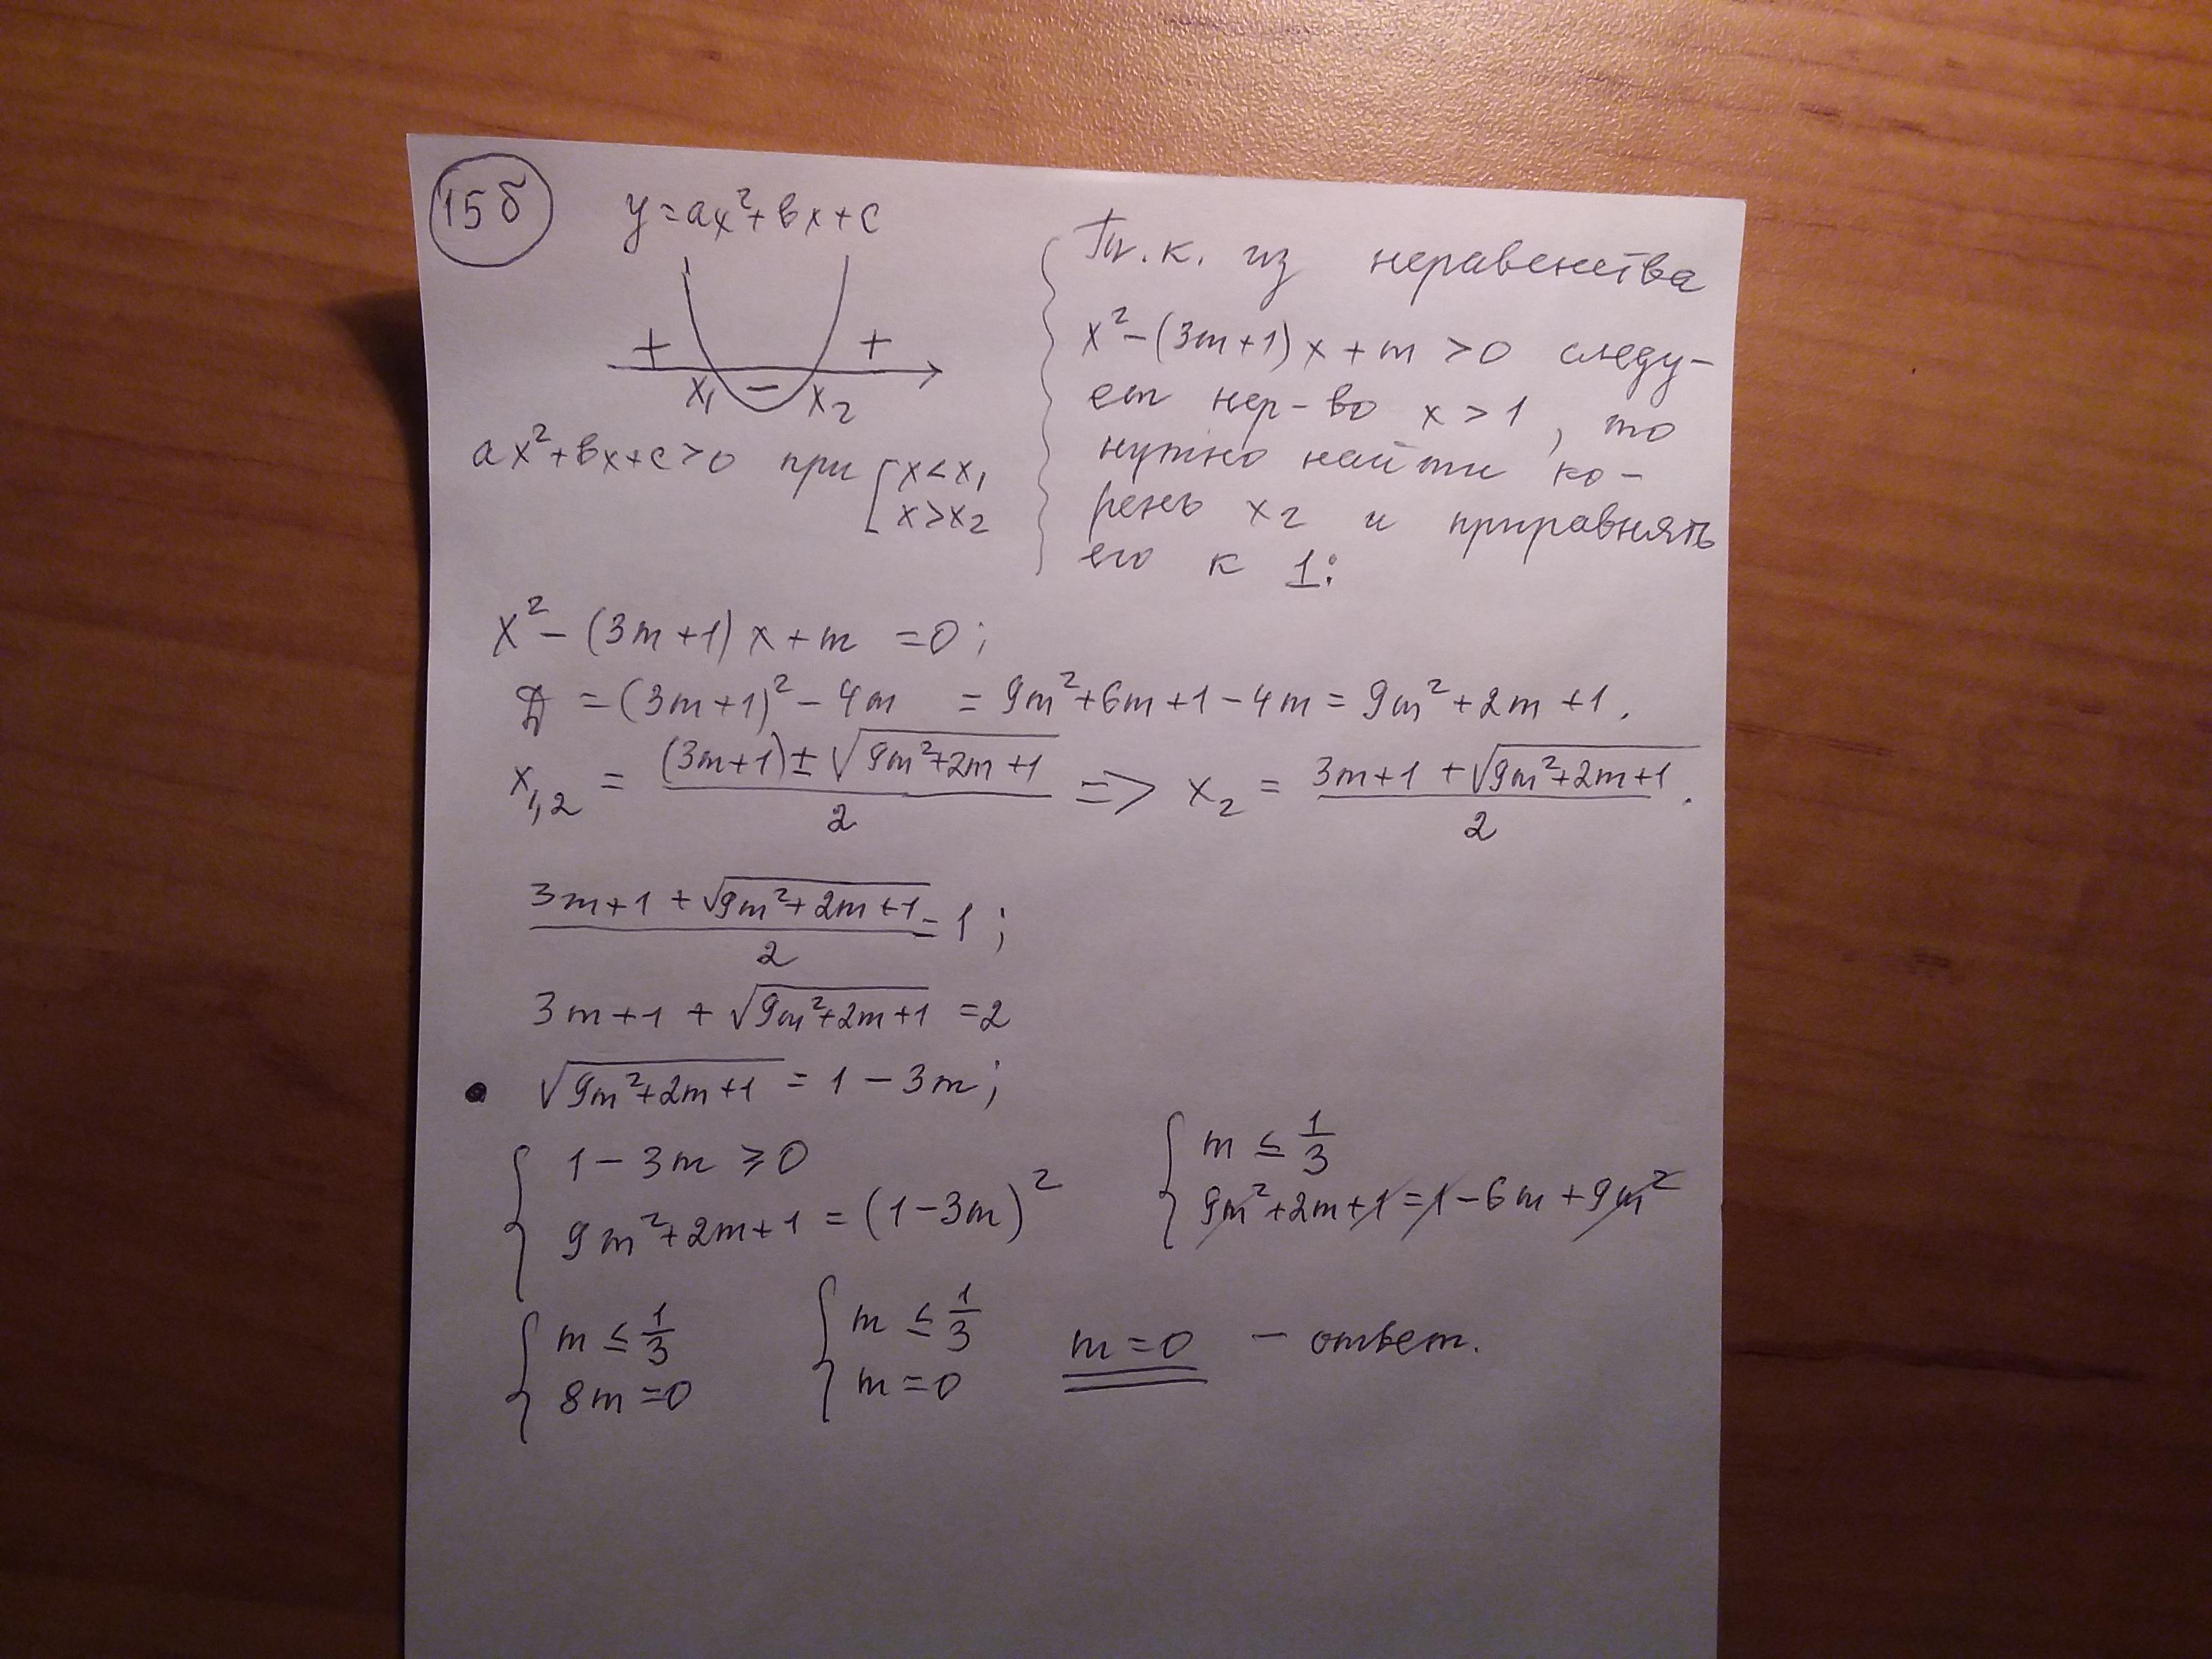 15б
y=ax²+bx+c
+ +
x₁ − x₂
ax²+bx+c>0 при [x<x₁
x>x₂
Т.к. из неравенства
x²−(3m+1)x+m>0 следу-
ет нер-во x>1, то
нужно найти ко-
рень x₂ и приравнять
его к 1:
x²−(3m+1)x+m =0;
Д =(3m+1)²−4m =9m²+6m+1−4m=9m²+2m+1.
x₁,₂ = ((3m+1)±√(9m²+2m+1))/2 => x₂ = (3m+1+√(9m²+2m+1))/2.
(3m+1+√(9m²+2m+1))/2 = 1;
3m+1+√(9m²+2m+1) =2
√(9m²+2m+1) = 1−3m;
{1−3m ≥0
9m²+2m+1=(1−3m)²
{m ≤ 1/3
9m²+2m+1=1−6m+9m²
{m ≤ 1/3
8m=0
{m ≤ 1/3
m=0
m=0 − ответ.